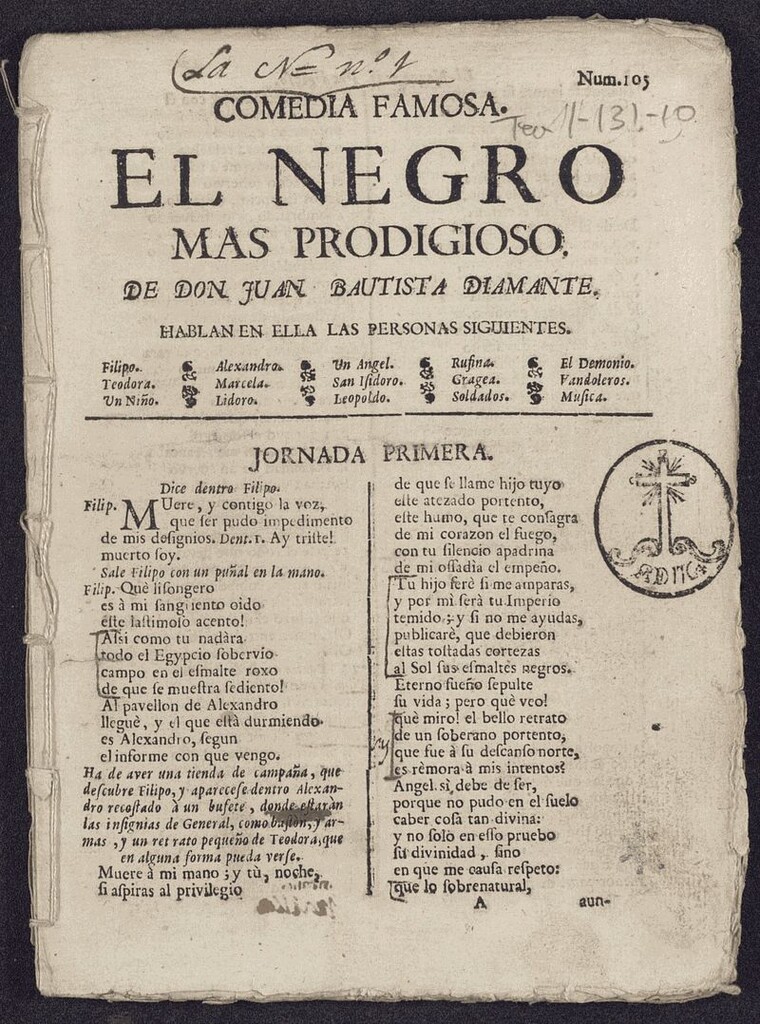 La N= nº. 1
Num.105
COMEDIA FAMOSA.
Tea 1-131-10
EL NEGRO
MAS PRODIGIOSO.
DE DON JUAN BAUTISTA DIAMANTE.
HABLAN EN ELLA LAS PERSONAS SIGUIENTES.
Filipo. Alexandro. Un Angel. Rufina. El Demonio.
Teodora. Marcela. San Iſidoro. Gragea. Vandoleros.
Un Niño. Lidoro. Leopoldo. Soldados. Muſica.
JORNADA PRIMERA.
Dice dentro Filipo.
Filip. MUere, y contigo la voz,
que ſer pudo impedimento
de mis deſignios. Dent. 1. Ay triſte!
muerto ſoy.
Sale Filipo con un puñal en la mano.
Filip. Què liſongero
es à mi ſangriento oido
eſte laſtimoſo acento!
Aſsi como tu nadàra
todo el Egypcio ſobervio
campo en el eſmalte roxo
de que ſe mueſtra ſediento!
Al pavellon de Alexandro
lleguè, y el que eſtà durmiendo
es Alexandro, ſegun
el informe con que vengo.
Ha de aver una tienda de campaña, que
deſcubre Filipo, y apareceſe dentro Alexan-
dro recoſtado à un bufete, donde eſtaràn
las inſignias de General, como baſton, y ar-
mas, y un retrato pequeño de Teodora, que
en alguna forma pueda verſe.
Muere à mi mano; y tù, noche,
ſi aſpiras al privilegio
de que ſe llame hijo tuyo
eſte atezado portento,
eſte humo, que te conſagra
de mi corazon el fuego,
con tu ſilencio apadrina
de mi oſſadia el empeño.
Tu hijo ſerè ſi me amparas,
y por mi ſerà tu Imperio
temido; y ſi no me ayudas,
publicarè, que debieron
eſtas toſtadas cortezas
al Sol ſus eſmaltes negros.
Eterno ſueño ſepulte
ſu vida; pero què veo!
què miro! el bello retrato
de un ſoberano portento,
que fue à ſu deſcanſo norte,
es rèmora à mis intentos?
Angel ſi debe de ſer,
porque no pudo en el ſuelo
caber coſa tan divina:
y no ſolo en eſſo pruebo
ſu divinidad, ſino
en que me cauſa reſpeto:
que lo ſobrenatural,
A aun-